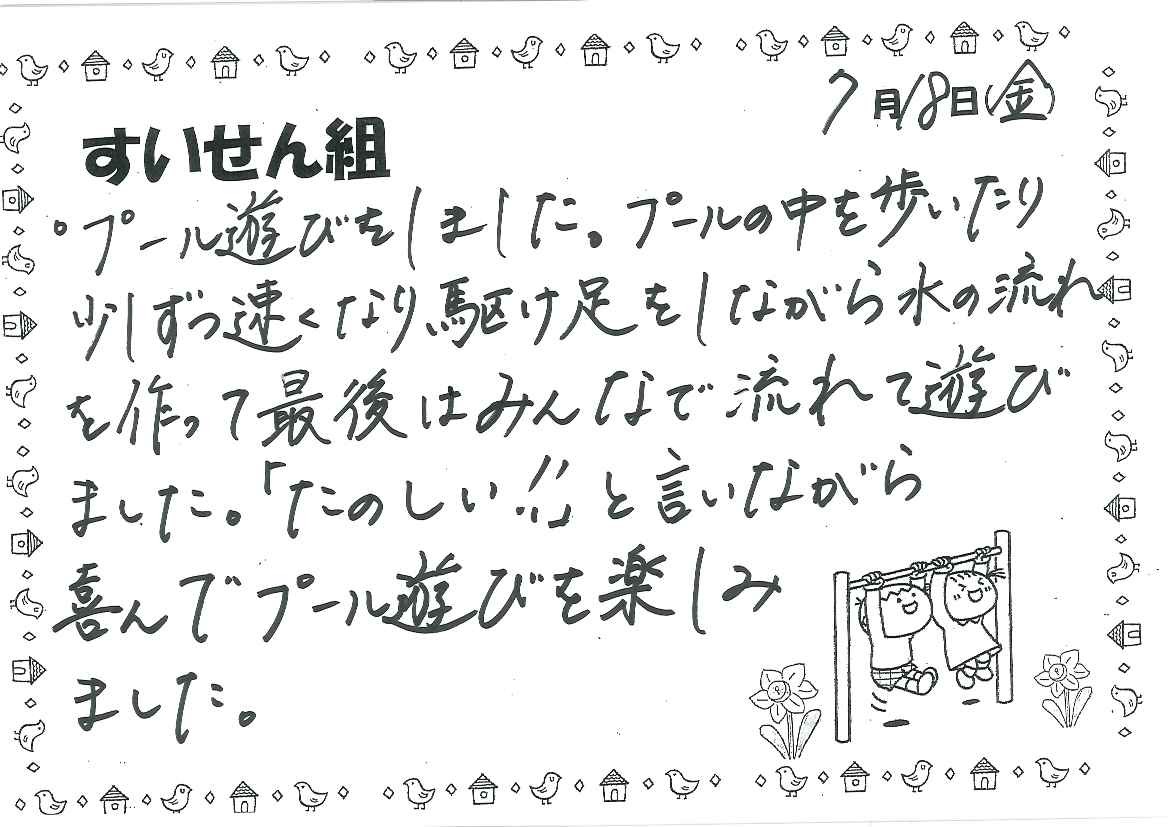 7月18日(金)
すいせん組
。プール遊びをしました。プールの中を歩いたり
少しずつ速くなり駆け足をしながら水の流れ
を作って最後はみんなで流れて遊び
ました。「たのしい!!」と言いながら
喜んでプール遊びを楽しみ
ました。